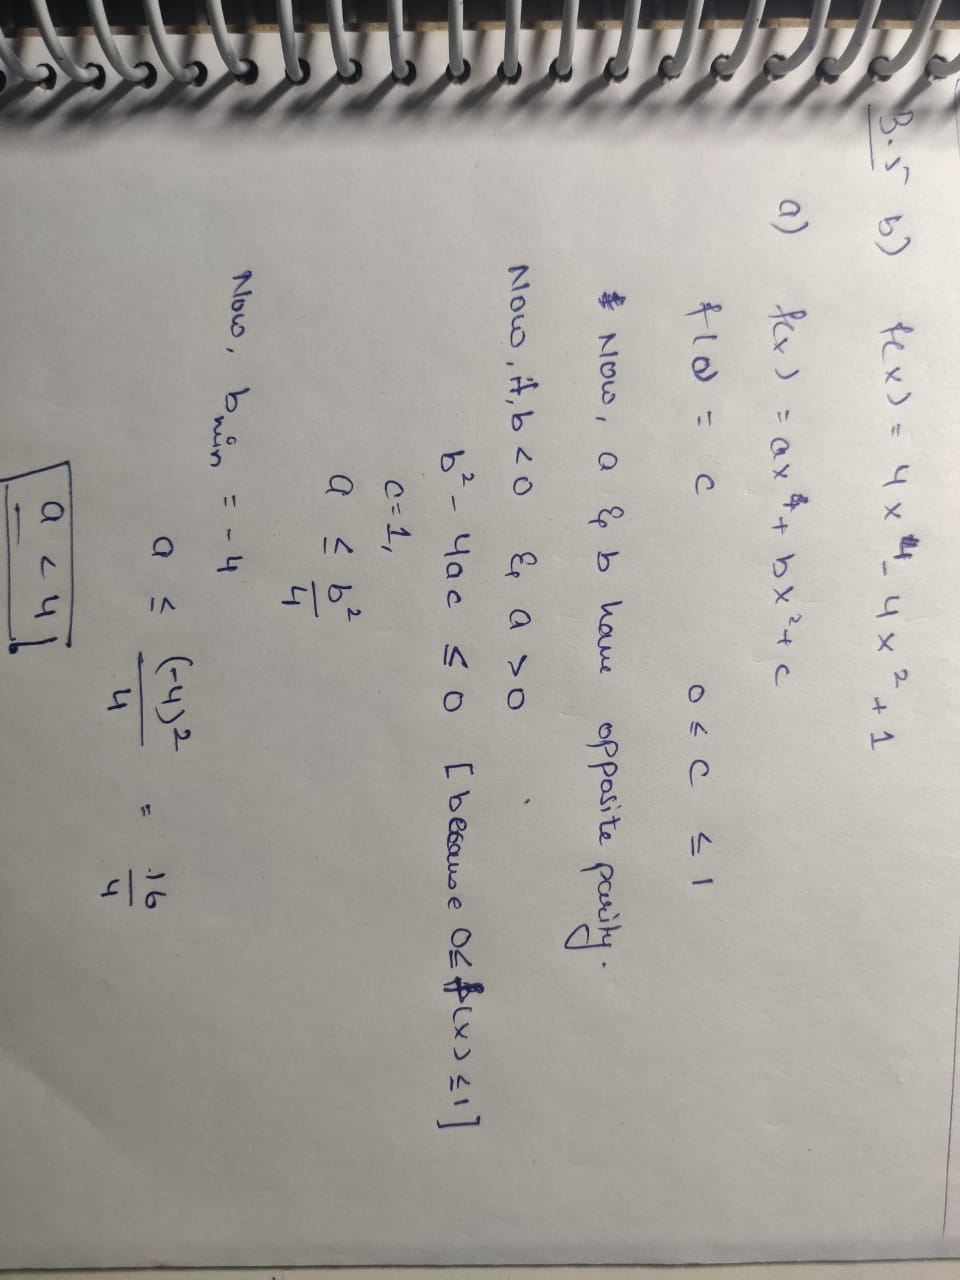 B.5 b) f(x) = 4x⁴ - 4x² + 1
a) f(x) = ax⁴ + bx² + c
f(0) = c 0 ≤ c ≤ 1
Now, a & b have opposite parity.
Now, if, b < 0 & a > 0
b² - 4ac ≤ 0 [because 0 ≤ f(x) ≤ 1]
c = 1,
a ≤ b²/4
Now, b min = -4
a ≤ (-4)²/4 = 16/4
a < 4